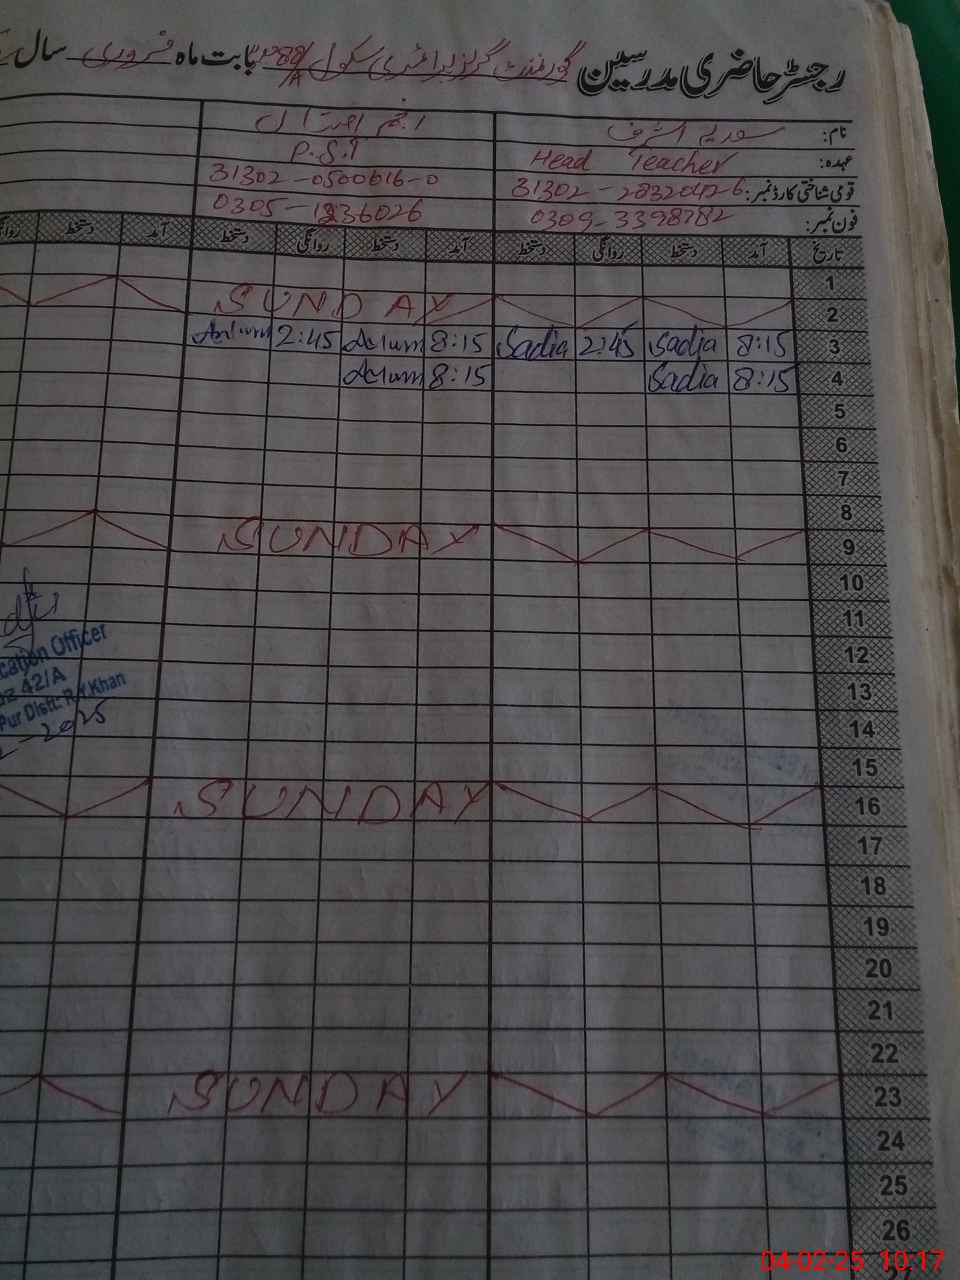 رجسٹر حاضری مدرسین گورنمنٹ گرلز پرائمری سکول 288/A بابت ماہ فروری سال
نام: سعدیہ اشرف
عہدہ: Head Teacher P.S.T
قومی شناختی کارڈ نمبر: 31302-0500616-0
فون نمبر: 0309-3398782 0305-1836026
تاریخ آمد دستخط روانگی دستخط آمد دستخط روانگی دستخط آمد دستخط
1
2 SUNDAY
3 8:15 Sadia 2:45 Sadia 8:15 2:45
4 8:15 Sadia 8:15
5
6
7
8
9 SUNDAY
10
11
12
13
14
15
16 SUNDAY
17
18
19
20
21
22
23 SUNDAY
24
25
26
cation Officer
42/A
Pur Distt: R.Y.Khan
2025
04-02-25 10:17